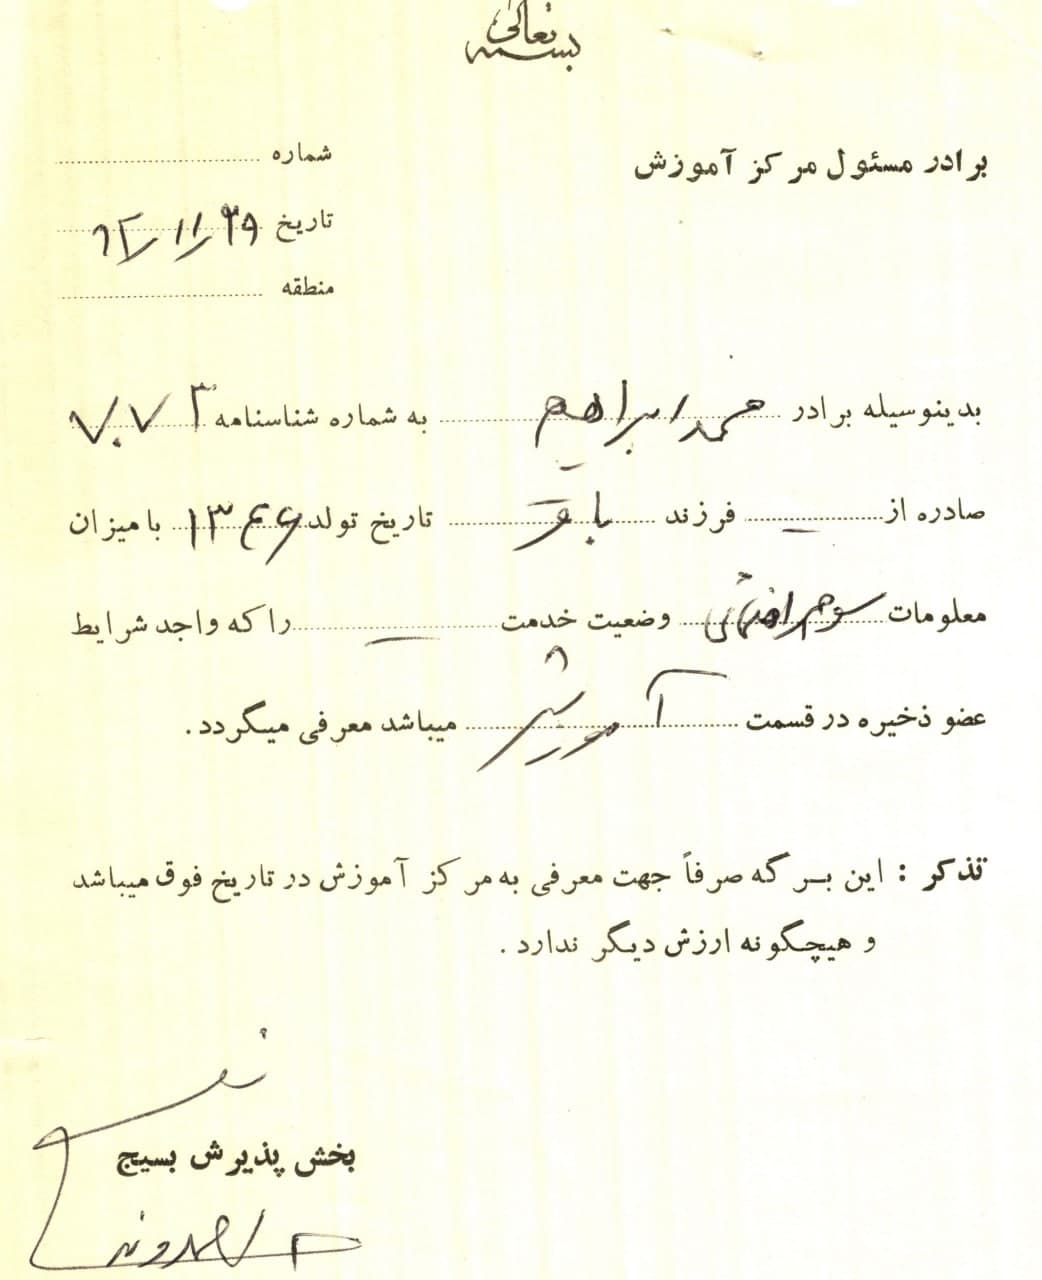 بسمه تعالی
برادر مسئول مرکز آموزش
شماره
تاریخ ۲۹/۱۱/۶۲
منطقه
بدینوسیله برادر محمد ابراهیم به شماره شناسنامه ۷۰۷۳
صادره از — فرزند باقر تاریخ تولد ۱۳۴۶ با میزان
معلومات سوم راهنمایی وضعیت خدمت — را که واجد شرایط
عضو ذخیره در قسمت آموزش میباشد معرفی میگردد.
تذکر : این برگه صرفاً جهت معرفی به مرکز آموزش در تاریخ فوق میباشد
و هیچگونه ارزش دیگر ندارد .
بخش پذیرش بسیج